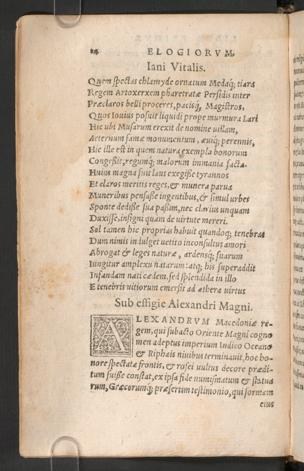 24 ELOGIORVM.
Iani Vitalis.
Quem spectas chlamyde ornatum Medaq́; tiara
Regem Artoxerxem pharetratæ Persidis inter
Præclaros belli proceres, pacisq́; Magistros,
Quos Iouius posuit liquidi prope murmura Lari
Hic ubi Musarum erexit de nomine uillam,
Aeternum famæ monumentum, æuiq́; perennis,
Hic ille est in quem natura exempla bonorum
Congessit, regumq́; malorum immania facta.
Huius magna fuit laus exegisse tyrannos
Et claros meritis reges, & munera parua
Muneribus pensasse ingentibus, & simul urbes
Sponte dedisse sua passim, nec clarius unquam
Duxisse, insigni quàm de uirtute mereri.
Sol tamen hic proprias habuit quandoq; tenebras
Dum nimis indulget uetito inconsultus amori
Abrogat & leges naturæ, ardensq; suarum
Iungitur amplexu natarum: atq; his superaddit
Infandam natì cædem. sed splendida in illo
E tenebris uitiorum emersit ad æthera uirtus
Sub effigie Alexandri Magni.
ALEXANDRVM Macedoniæ re-
gem, qui subacto Oriente Magni cogno
men adeptus imperium Indico Oceano
& Riphæis niuibus terminauit, hoc ho-
nore spectatæ frontis, & rasei uultus decore prædi-
tum fuisse constat, ex ipsa fide numismatum & statuæ
rum, Græcorumq; præsertim testimonio, qui formam
eius